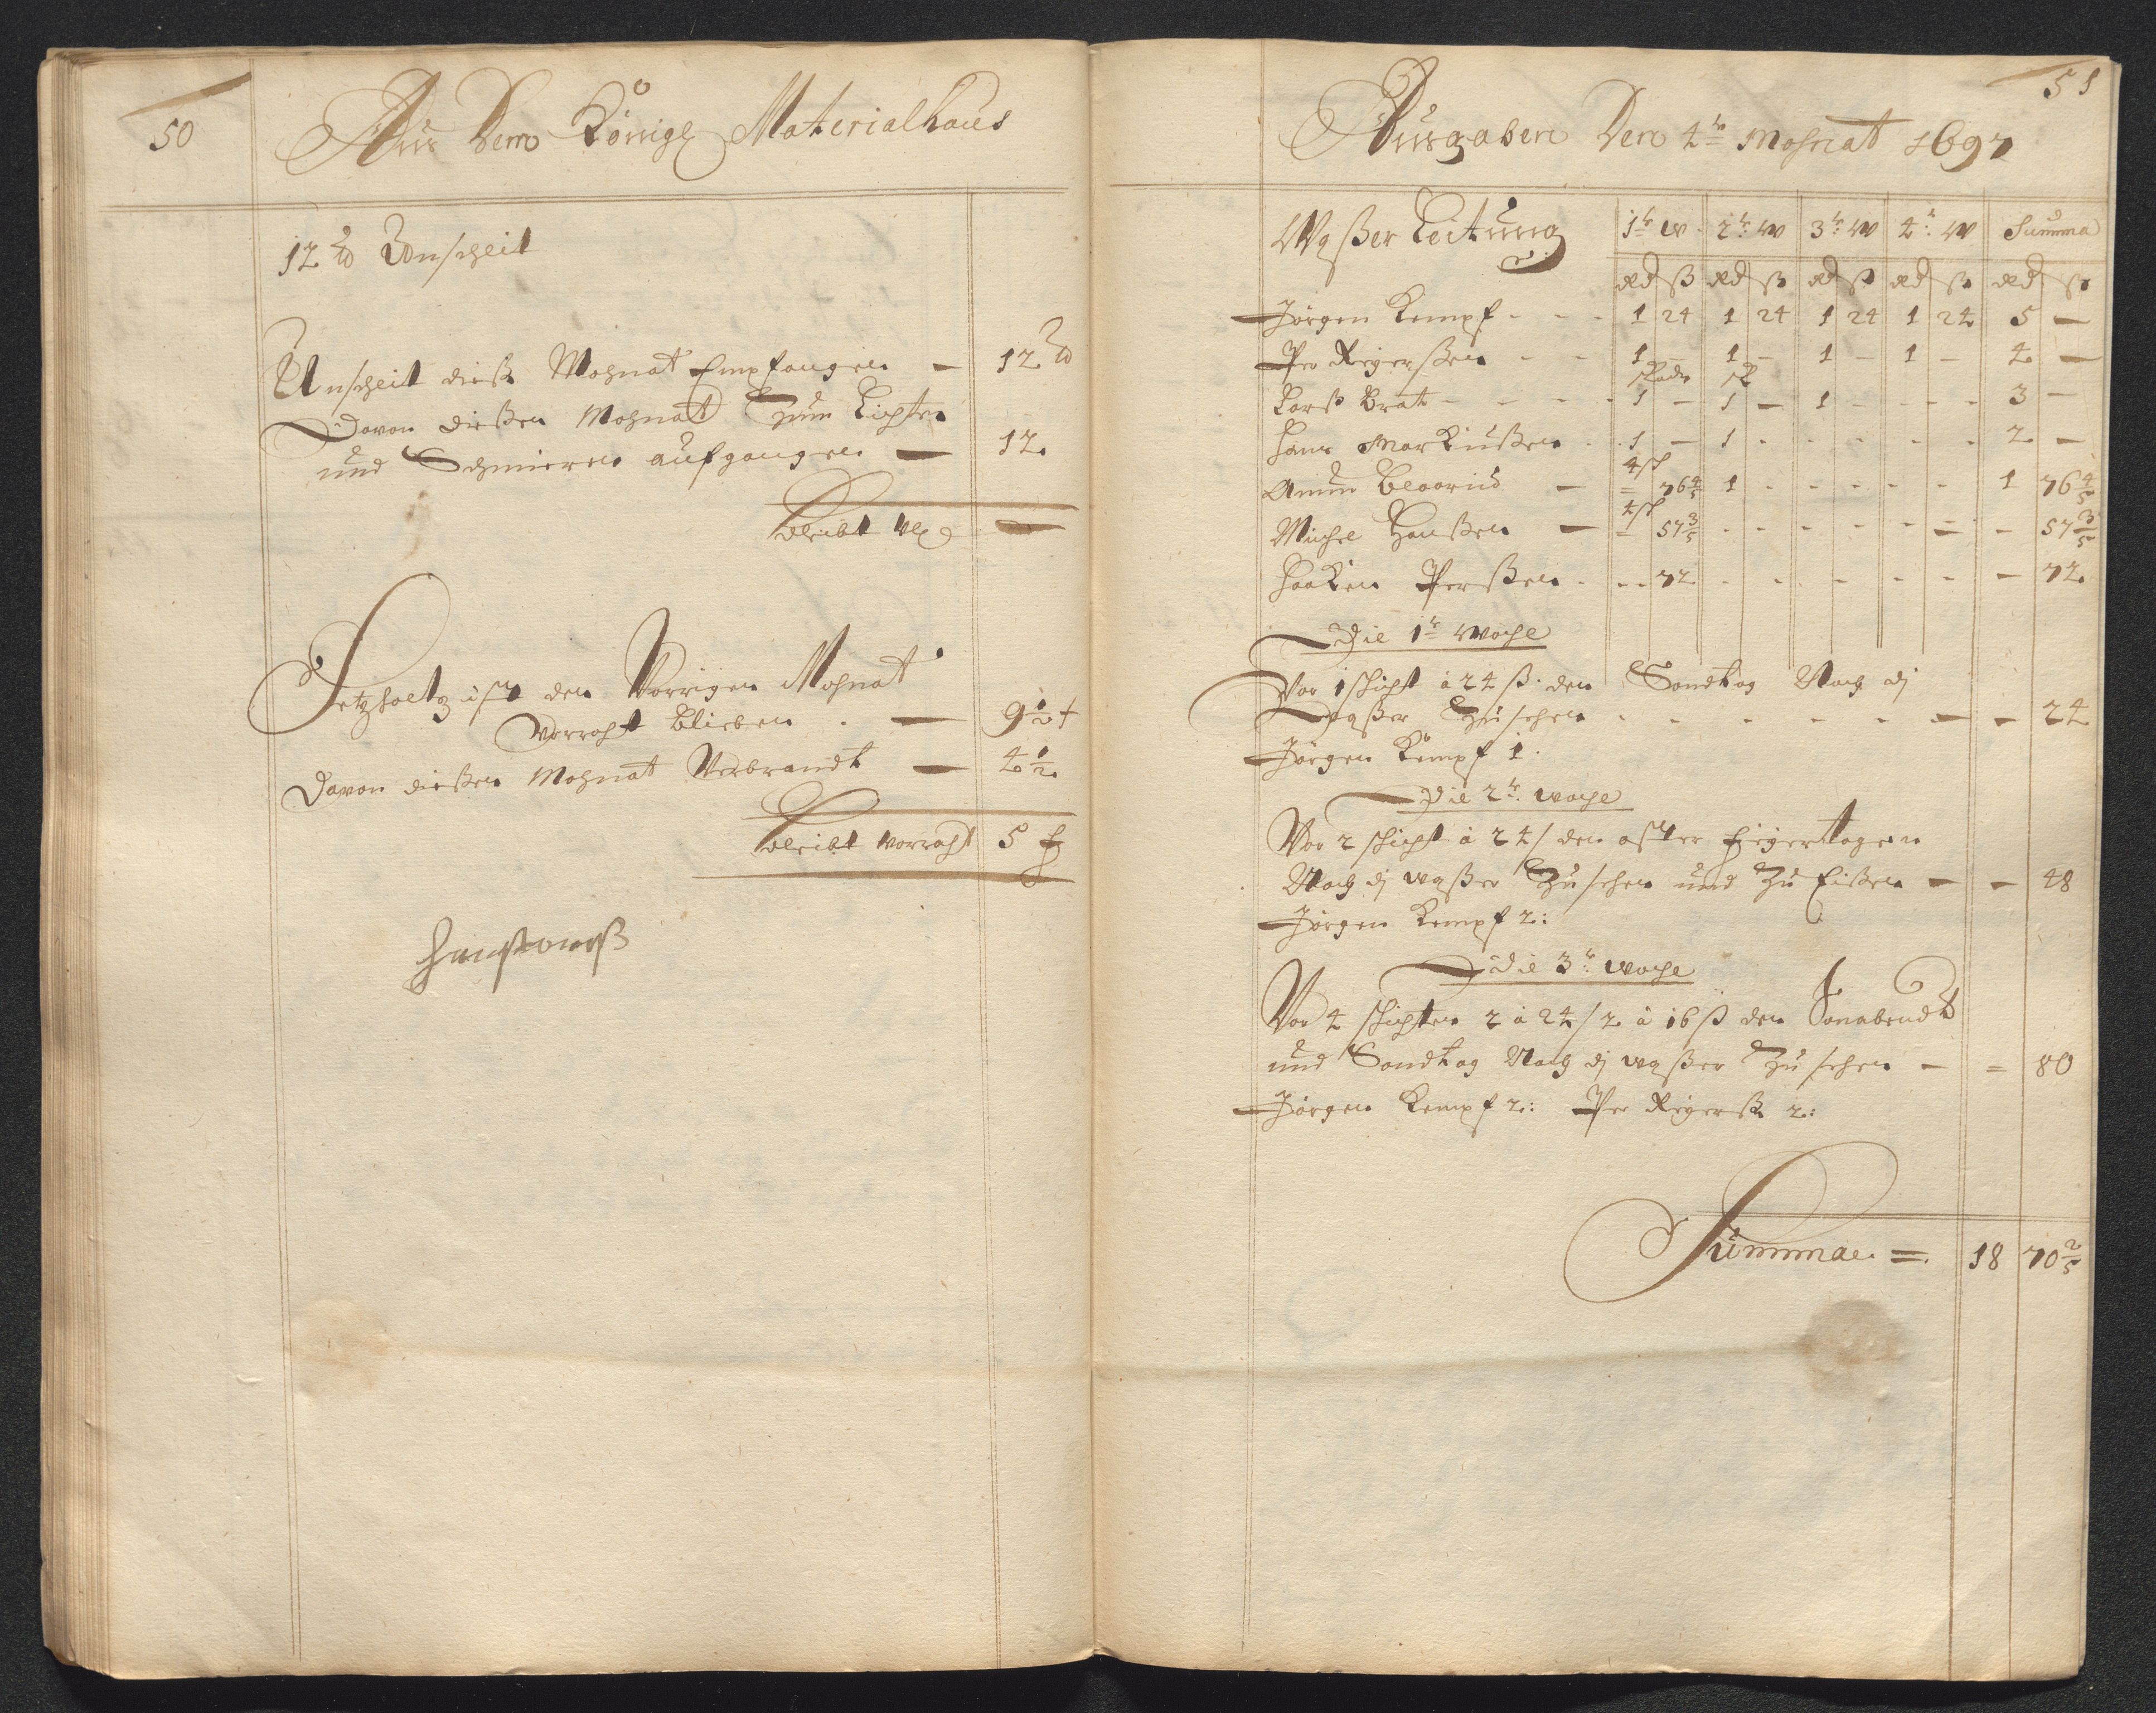 50
Aus Dem Königl Materialhaus
12 ℔ Unscheit
Unscheit diese Mohnat Empfangen — 12 ℔
Davon dießen Mohnat zum Lichten
und Schmieren aufgangen — 12
bleibt —
Setzholtz ist den Vorrigen Mohnat
Vorraht blieben . — 9 1/2 f
Davon dießen Mohnat Verbrandt — 4 1/2
bleibt Vorraht 5 f
51
Ausgaben Den 4te Mohnat 1697
Waßer Leitung 1te W 2te W 3te W 4te W Summa
Rd ß Rd ß Rd ß Rd ß Rd ß
Jörgen Kempf - - - 1 24 1 24 1 24 1 24 5 —
Per Reyerßen - - 1 - 1 - 1 - 1 - 4 —
Larß Brat - - - - 1 - 1 - 1 - - - 3 —
Hans Markußen - 1 - 1 - - - - - 2 —
Amun — 4 sch = 76 4/5 1 - - - - - 1 76 4/5
Michel Hanßen — 4 sch = 57 3/5 - - - - - - - 57 3/5
Haaken Perßen - - - 72 - - - - - - 72
Die 1te Woche
Vor 1 schicht à 24 ß den Sondtag Nach dz
Waßer Zu sehen - - - - - - - — 24
Jörgen Kempf 1.
Die 2te woche
Vor 2 schicht à 24 / den oster feyertagen
Nach dz waßer Zu sehen und Zu Eißen — — 48
Jörgen Kempf 2:
Die 3te woche
Vor 4 schichten 2 à 24 / 2 à 16 ß den Sonabendt
und Sondtag Nach dz waßer Zu sehen — = 80
Jörgen Kempf 2: Per Reyerß 2:
Summa = 18 70 2/5